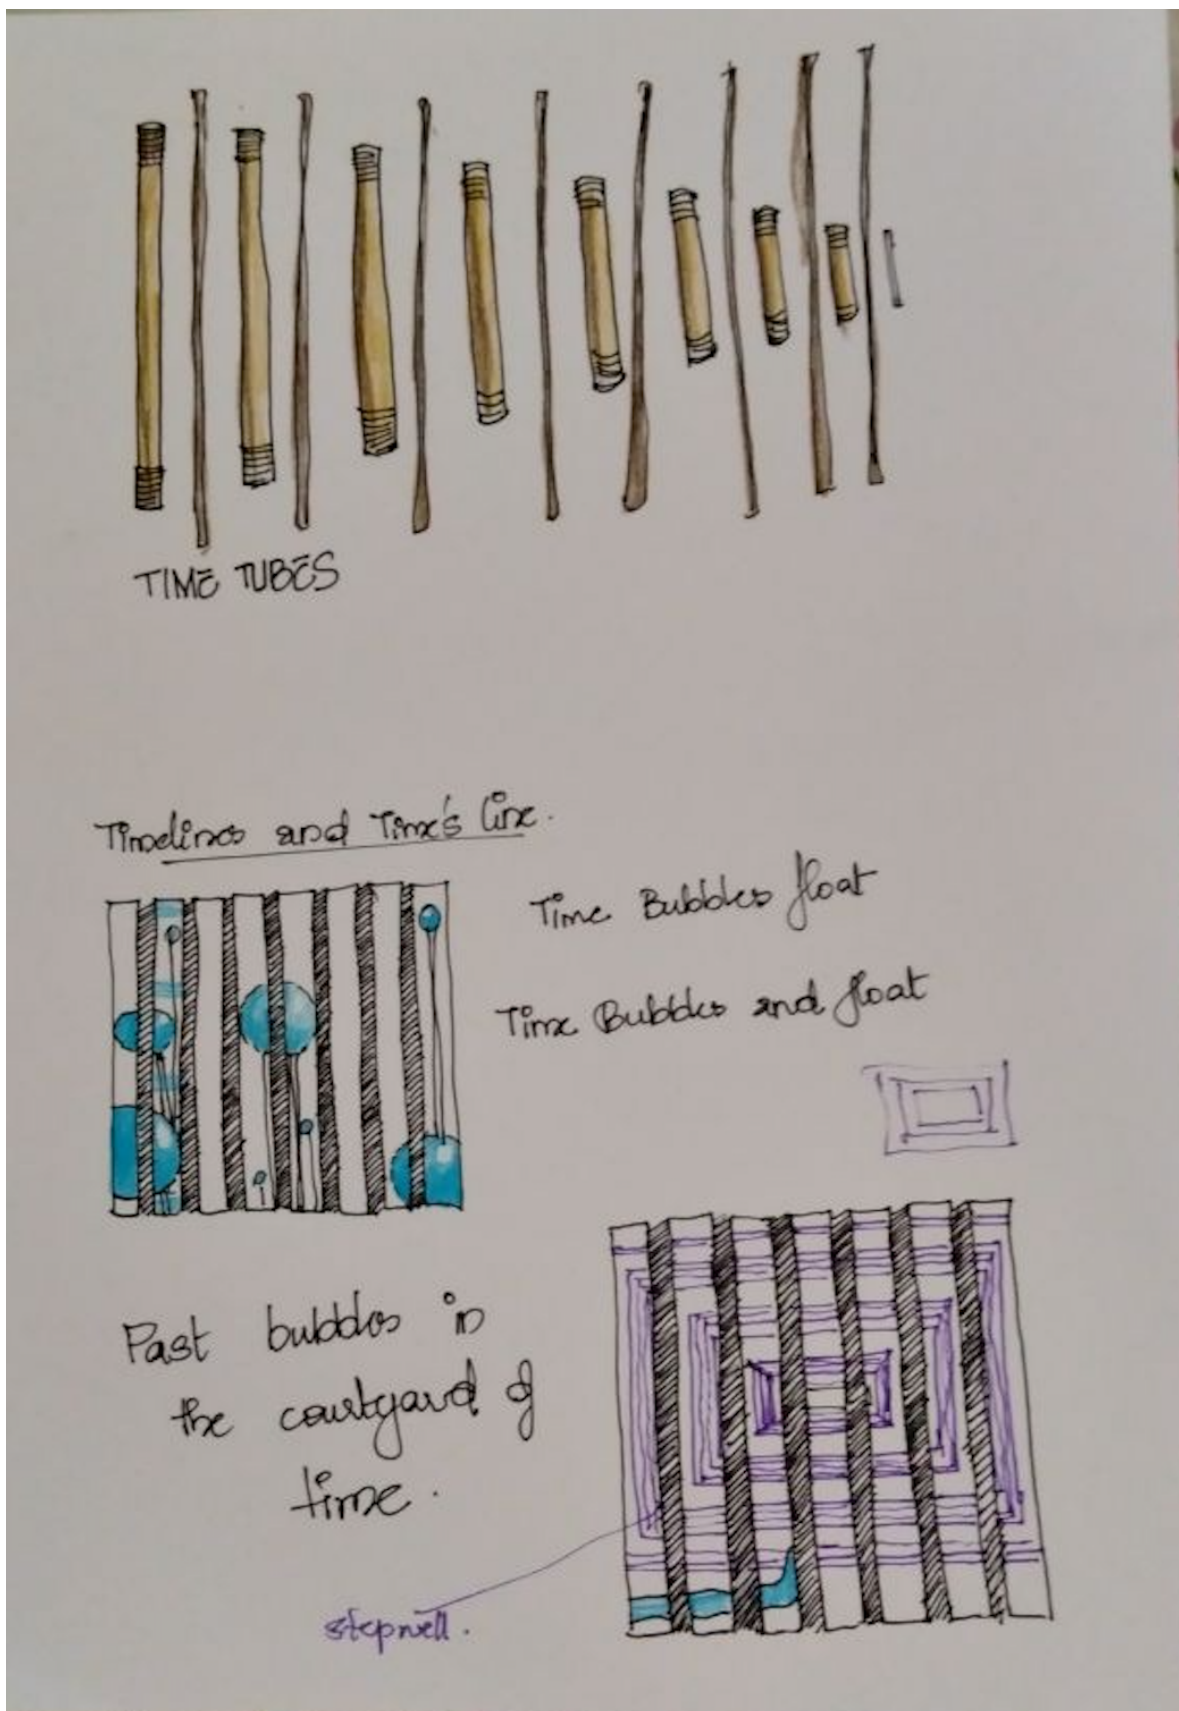 TIME TUBES
Timelines and Time's line.
Time Bubbles float
Time Bubbles and float
Past bubbles in
the courtyard of
time.
stepwell.